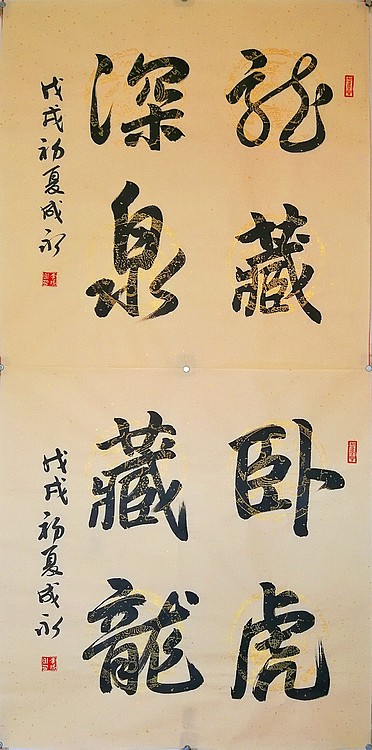 龙藏
深泉
戊戌初夏成永
卧虎
藏龍
戊戌初夏成永